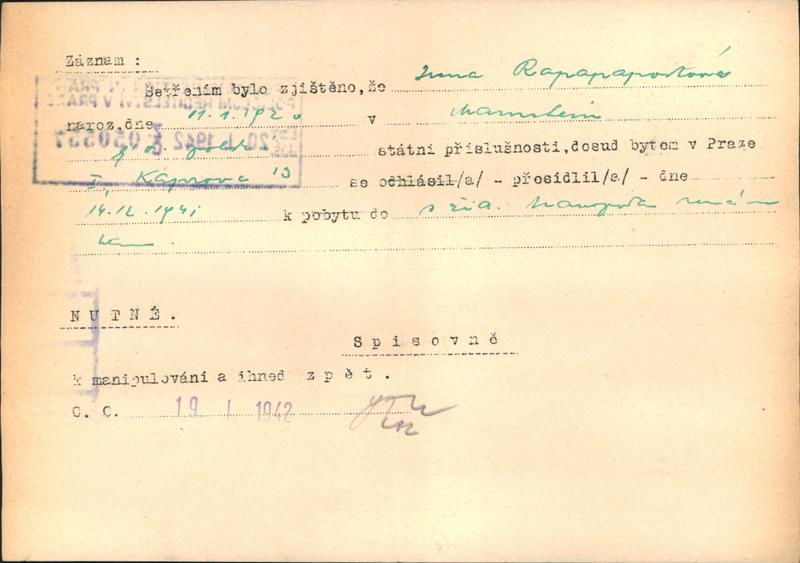 Záznam :
Šetřením bylo zjištěno, že Rapapaportová
naroz. dne 11.1.1920 v Mannheim
státní příslušnosti, dosud bytem v Praze
I., Kaprova 13 se odhlásil/a/ - přesídlil/a/ - dne
14.12.1941 k pobytu do s žid. transportem
NUTNÉ.
Spisovně
k manipulování a ihned zpět.
C. C. 19 I 1942